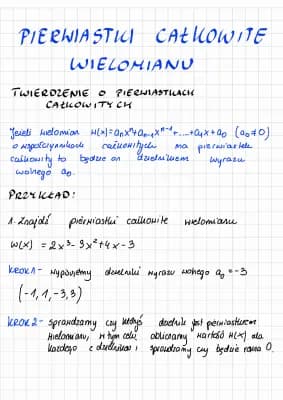 PIERWIASTKI CAŁKOWITE
WIELOMIANU
TWIERDZENIE O PIERWIASTKACH
CAŁKOWITYCH
Jeżeli wielomian W(x)=aₙxⁿ+aₙ₋₁xⁿ⁻¹+....+a₁x+a₀ (a₀≠0)
o współczynnikach całkowitych ma pierwiastek
całkowity to będzie on dzielnikiem wyrazu
wolnego a₀.
PRZYKŁAD:
1. Znajdź pierwiastki całkowite wielomianu
W(x) = 2x³-3x²+4x-3
KROK 1- wypiszemy dzielniki wyrazu wolnego a₀=-3
(-1,1,-3,3)
KROK 2- sprawdzamy czy któryś dzielnik jest pierwiastkiem
wielomianu, w tym celu obliczamy wartość W(x) dla
każdego z dzielników i sprawdzamy czy będzie równa 0.